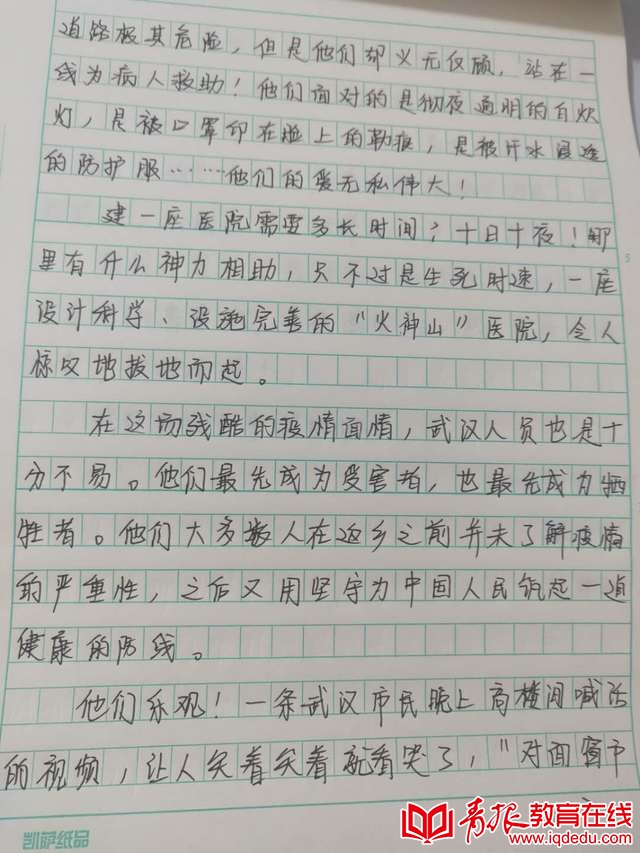 道路极其危险，但是他们却义无反顾，站在一
线为病人救助！他们面对的是彻夜通明的白炽
灯，是被口罩印在脸上的勒痕，是被汗水浸透
的防护服……他们的爱无私伟大！
建一座医院需要多长时间？十日十夜！哪
里有什么神力相助，只不过是生死时速，一座
设计科学、设施完善的“火神山”医院，令人
惊叹地拔地而起。
在这场残酷的疫情面情，武汉人员也是十
分不易。他们最先成为受害者，也最先成为牺
牲者。他们大多数人在返乡之前并未了解疫情
的严重性，之后又用坚守为中国人民筑起一道
健康的防线。
他们乐观！一条武汉市民晚上高楼间喊话
的视频，让人笑着笑着就看哭了，“对面窗户
凯萨纸品
青报教育在线
www.iqdedu.com